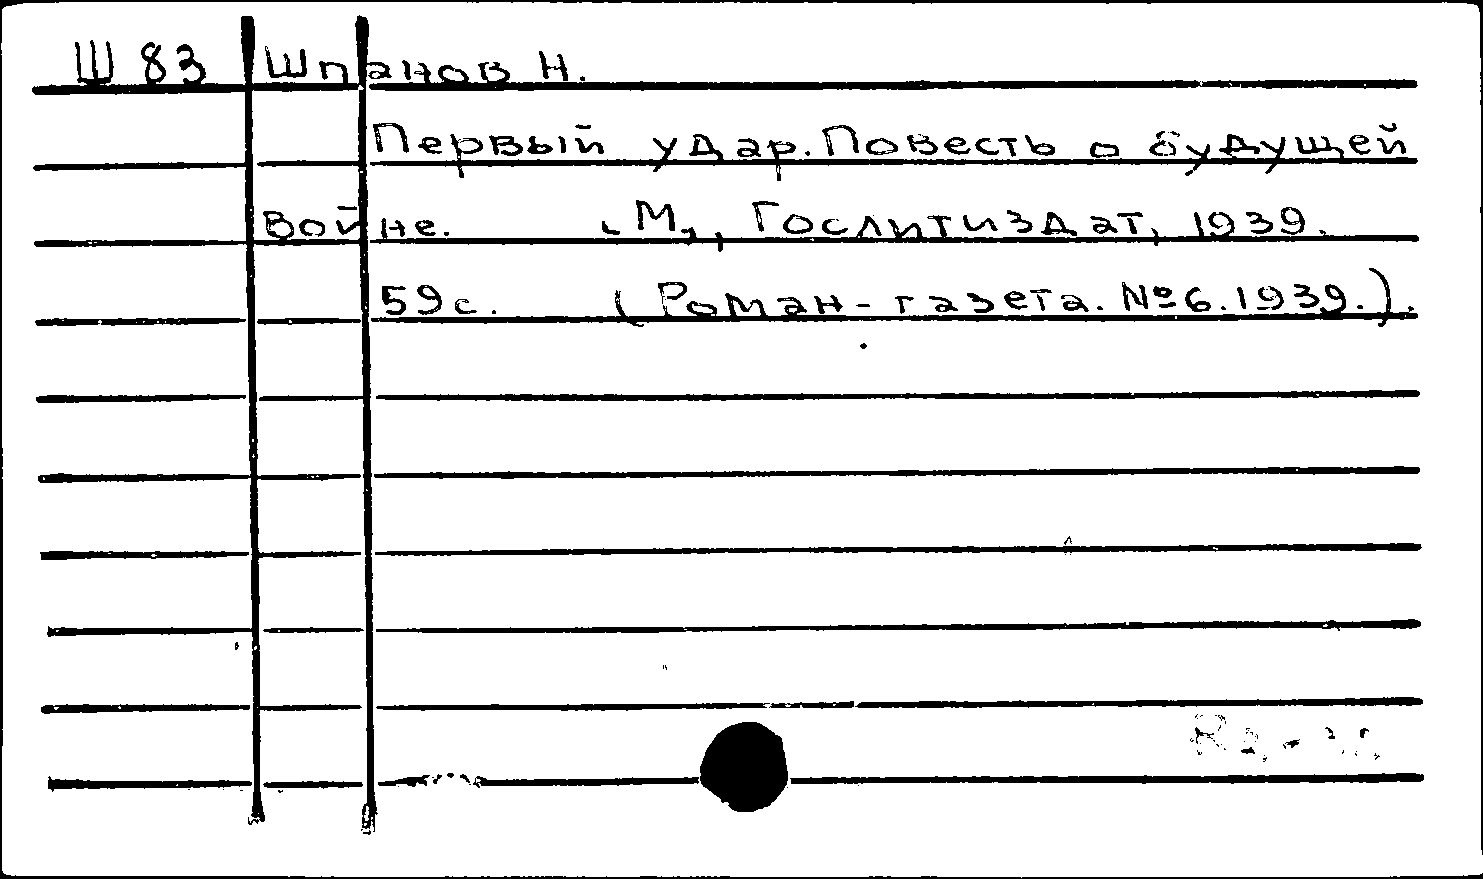 Ш 83 Шпанов Н.
Первый удар. Повесть о будущей
войне. М., Гослитиздат, 1939.
59 с. (Роман-газета. №6. 1939.).